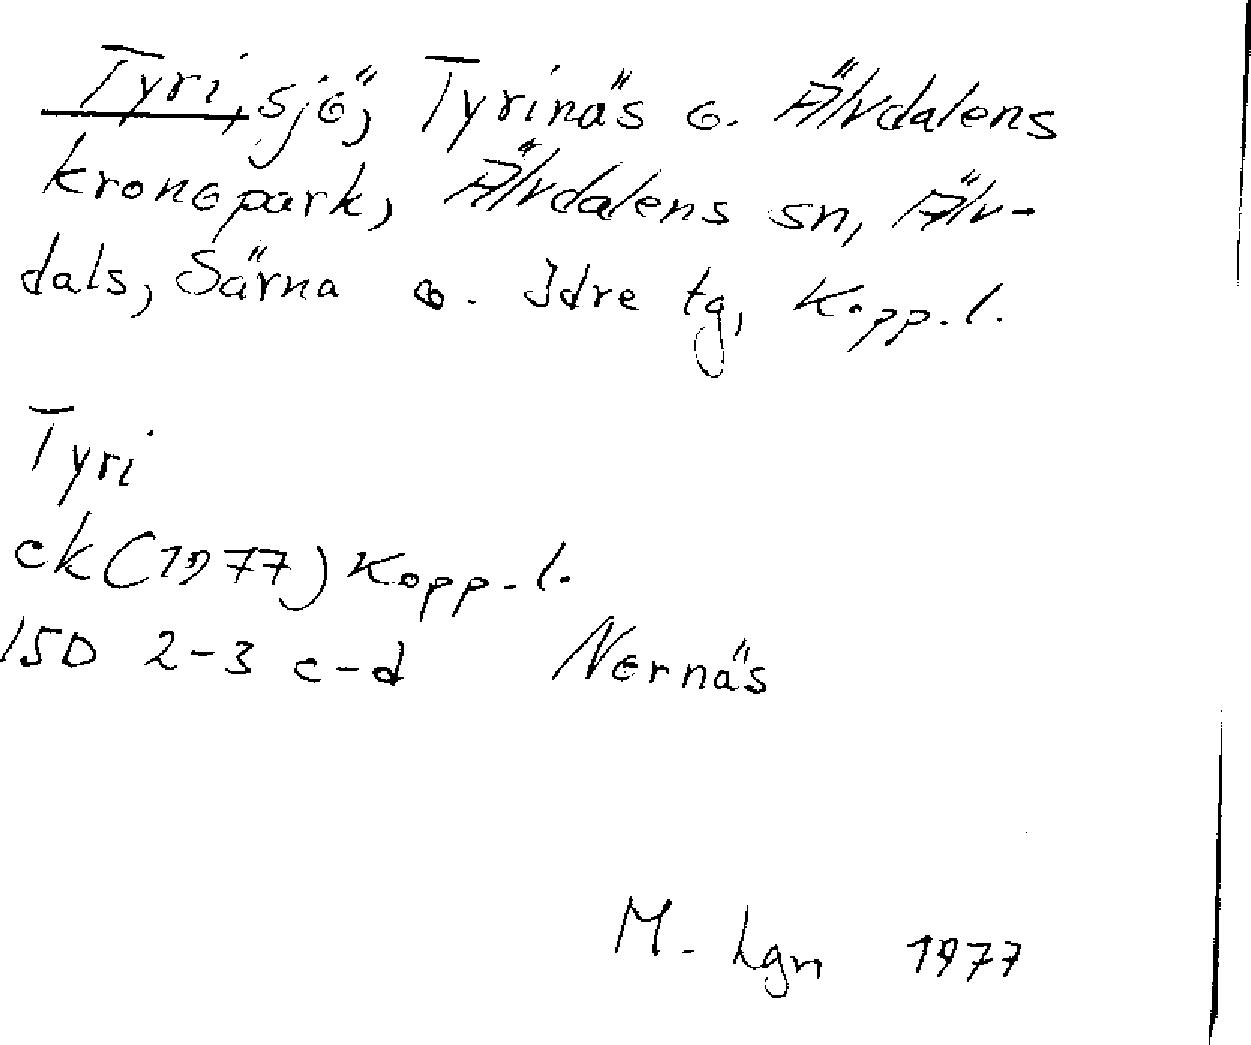 Tyri, sjö, Tyrinäs o. Älvdalens
kronopark, Älvdalens sn, Älv-
dals, Särna o. Idre tg, Kopp. l.
Tyri
ck (1977) Kopp. l.
15D 2-3 c-d Nornäs
M. Lgn 1977